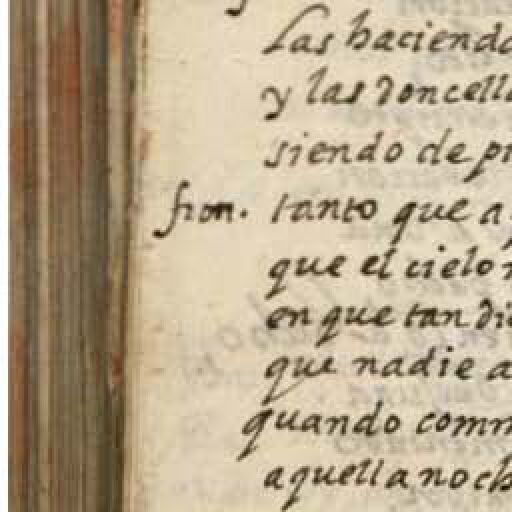 Las haciend
y las doncell
siendo de p
fron. tanto que a
que el cielo
en que tan di
que nadie a
quando com
aquella noch